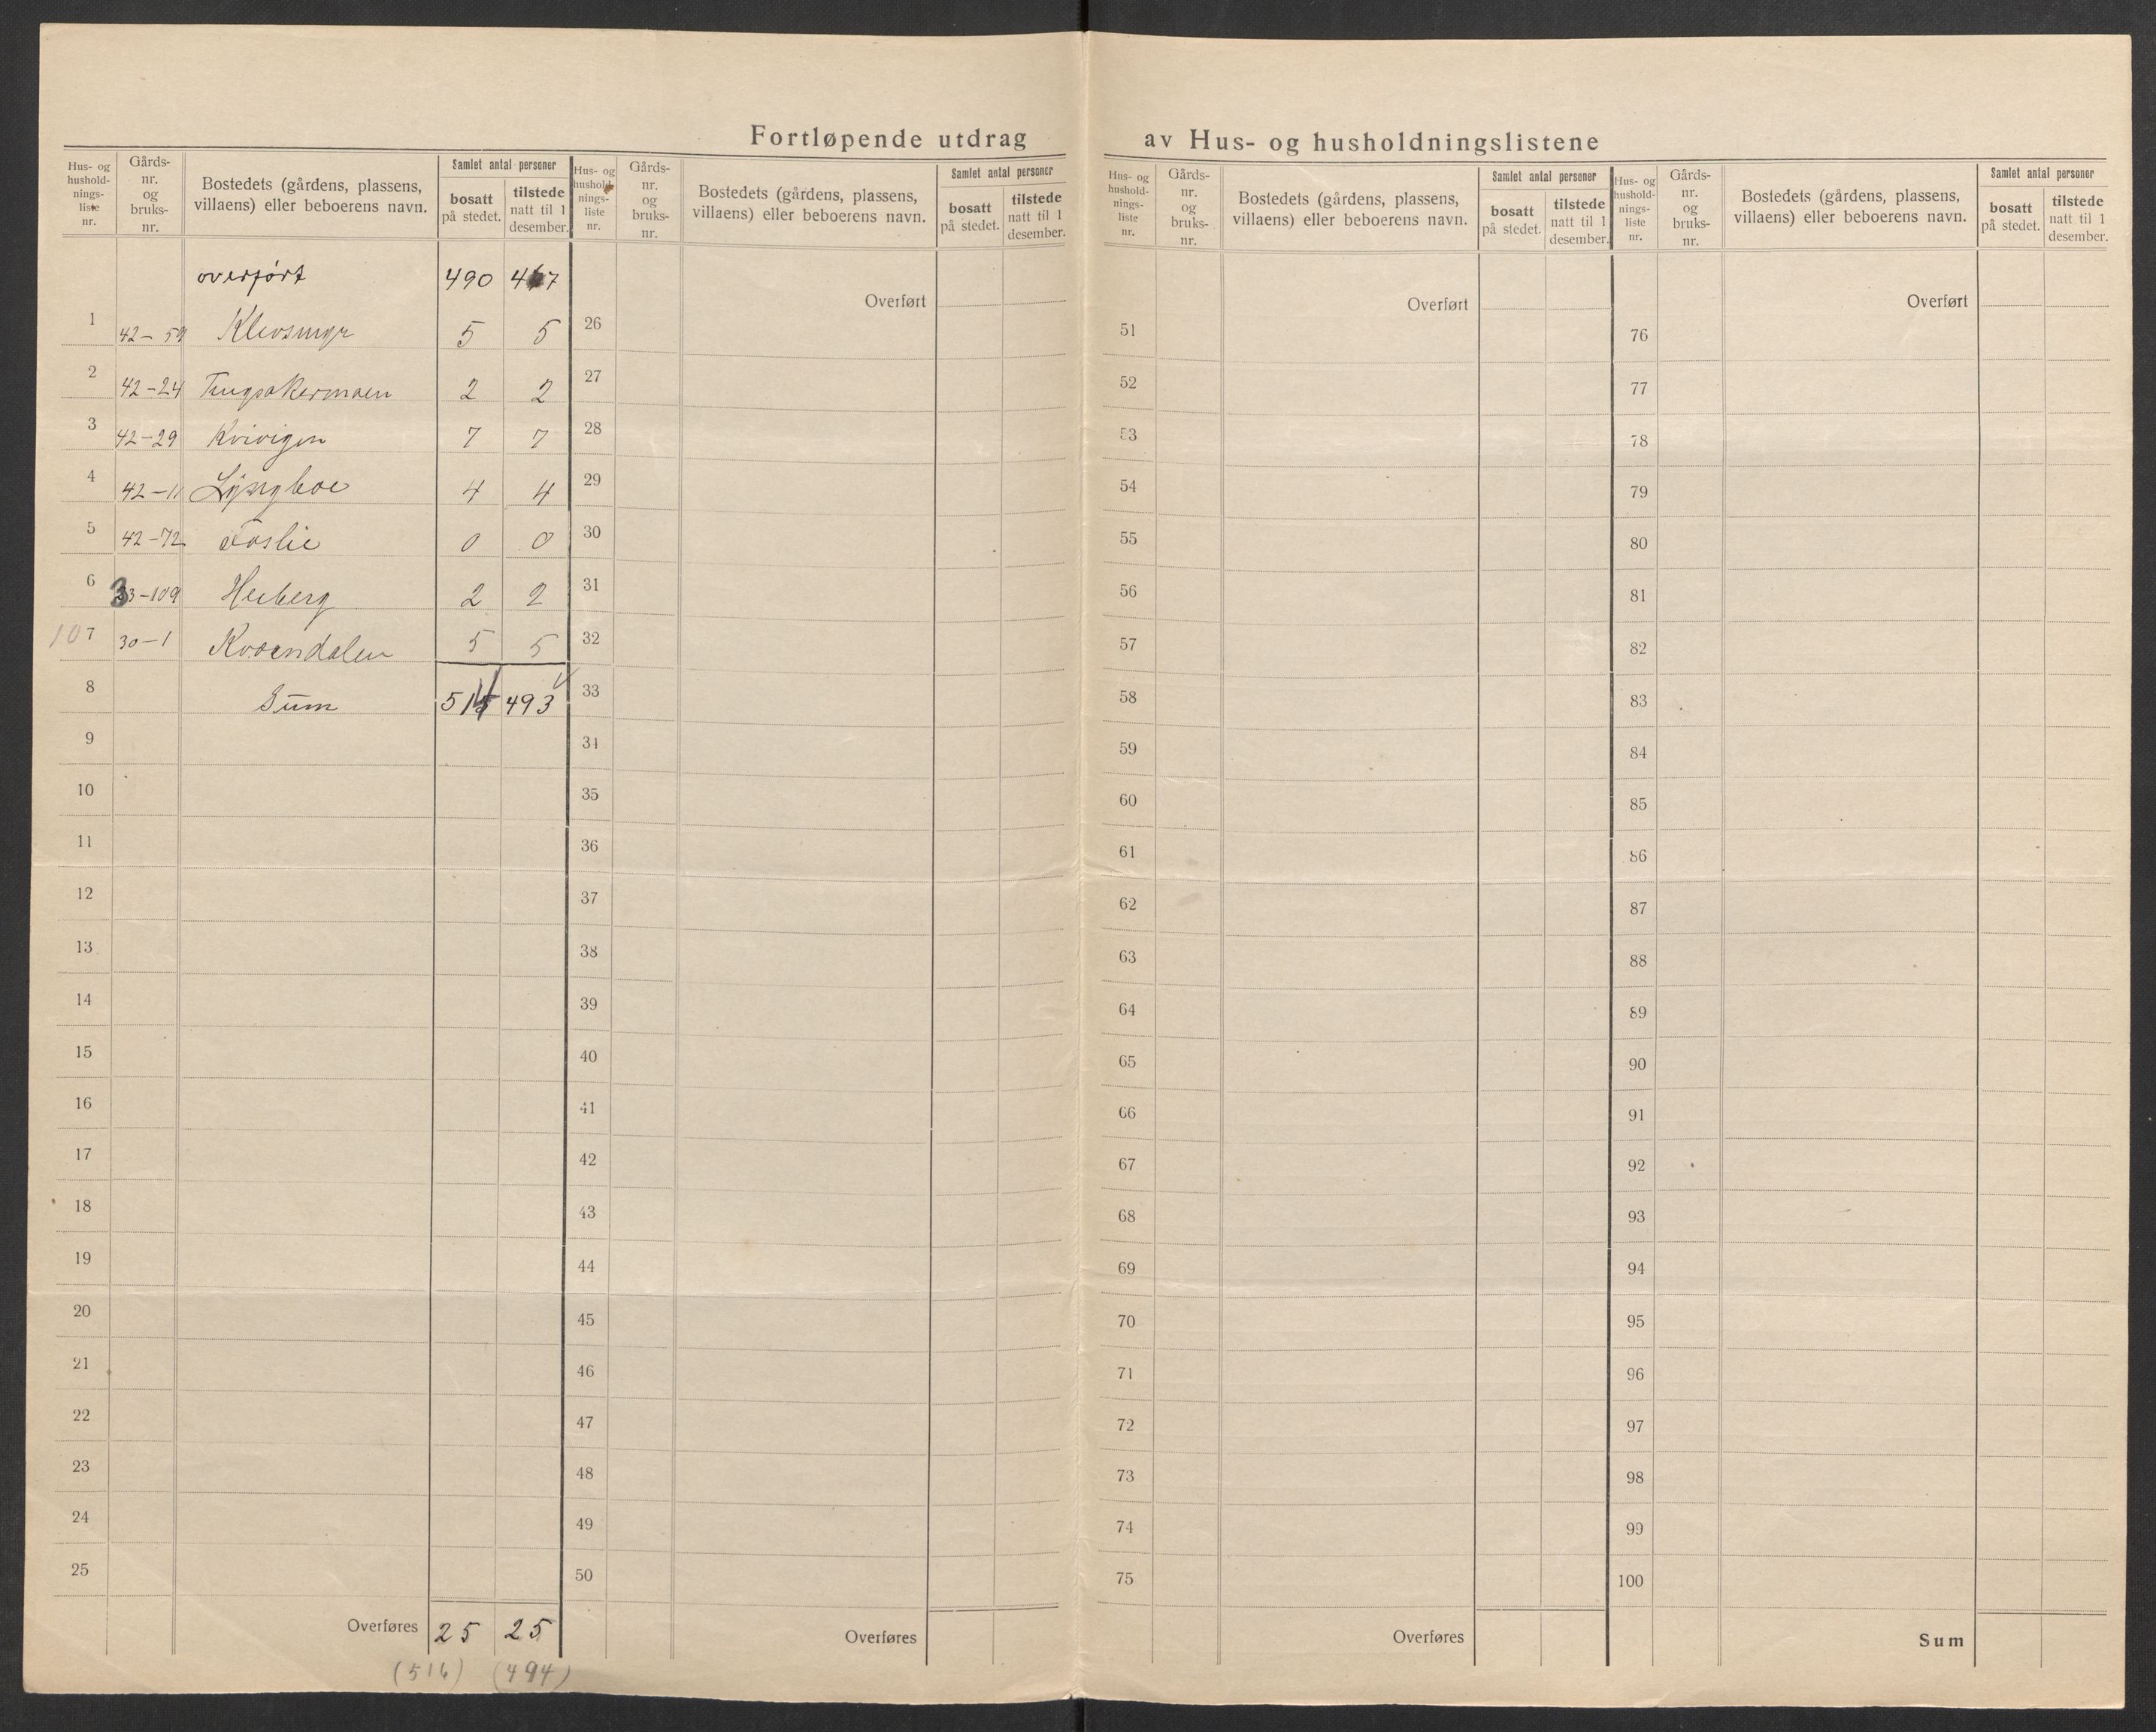 Fortløpende utdrag av Hus- og husholdningslistene
Hus- og hushold-nings-liste nr. Gårds-nr. og bruks-nr. Bostedets (gårdens, plassens, villaens) eller beboerens navn. Samlet antal personer bosatt på stedet. tilstede natt til 1 desember.
overført 490
1 42-59 5 5
2 42-24 2 2
3 42-29 Kvivigen 7 7
4 42-11 Lyngboe 4 4
5 42-72 0 0
6 33-109 Heiberg 2 2
107 30-1 5 5
8 Sum 493
9
10
11
12
13
14
15
16
17
18
19
20
21
22
23
24
25
Overføres 25 25
(516) (494)
Hus- og hushold-nings-liste nr. Gårds-nr. og bruks-nr. Bostedets (gårdens, plassens, villaens) eller beboerens navn. Samlet antal personer bosatt på stedet. tilstede natt til 1 desember.
Overført
26
27
28
29
30
31
32
33
34
35
36
37
38
39
40
41
42
43
44
45
46
47
48
49
50
Overføres
Hus- og hushold-nings-liste nr. Gårds-nr. og bruks-nr. Bostedets (gårdens, plassens, villaens) eller beboerens navn. Samlet antal personer bosatt på stedet. tilstede natt til 1 desember.
Overført
51
52
53
54
55
56
57
58
59
60
61
62
63
64
65
66
67
68
69
70
71
72
73
74
75
Overføres
Hus- og hushold-nings-liste nr. Gårds-nr. og bruks-nr. Bostedets (gårdens, plassens, villaens) eller beboerens navn. Samlet antal personer bosatt på stedet. tilstede natt til 1 desember.
Overført
76
77
78
79
80
81
82
83
84
85
86
87
88
89
90
91
92
93
94
95
96
97
98
99
100
Sum